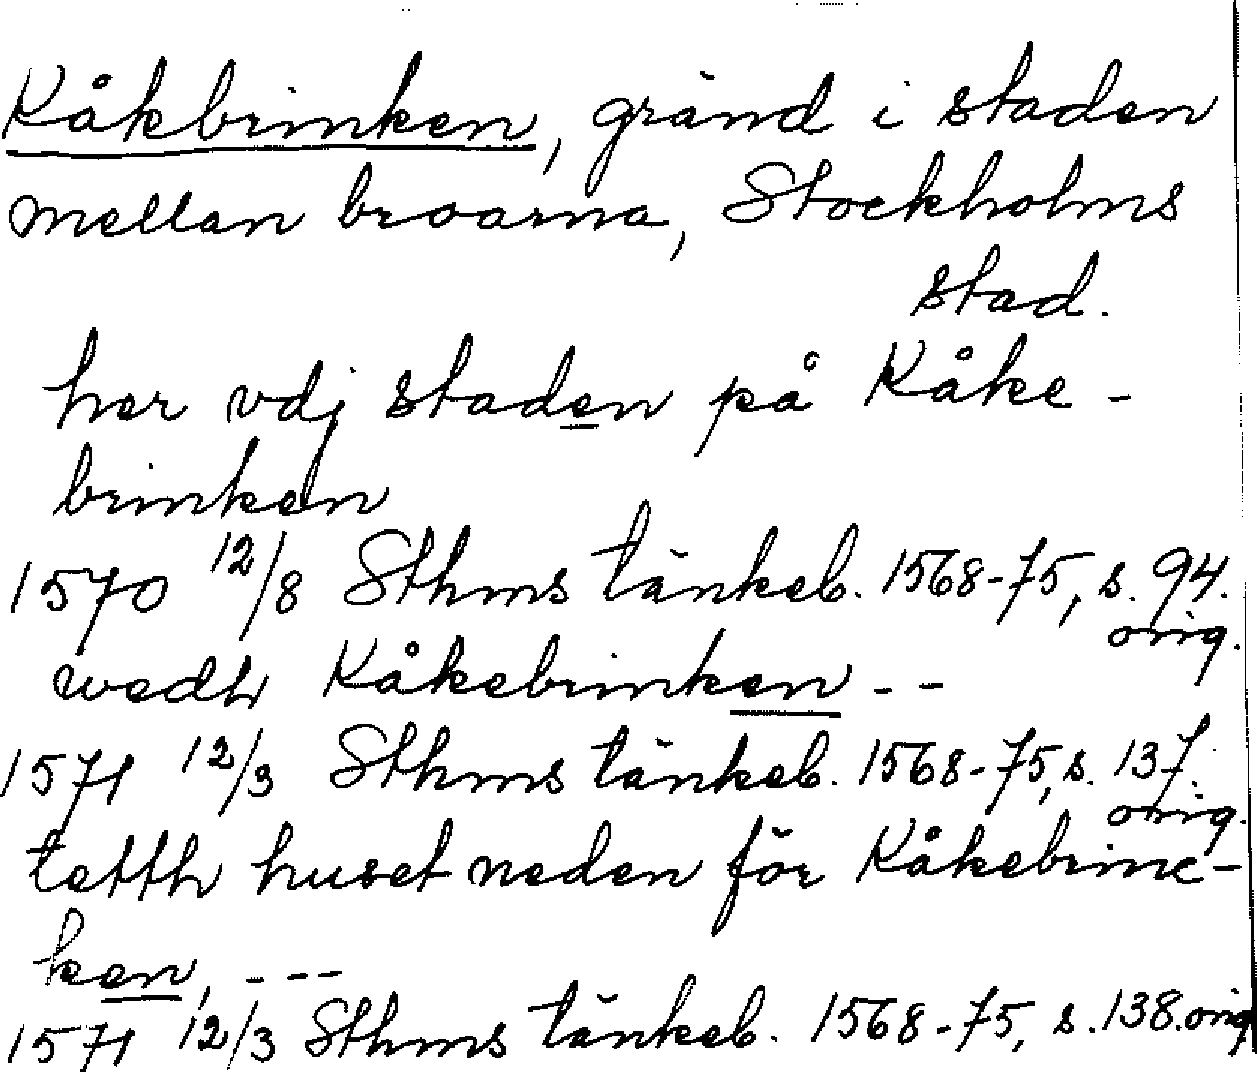 Kåkbrinken, gränd i staden
mellan broarna, Stockholms
stad.
her vdj staden på Kåke-
brinken
1570 12/8 Sthms tänkeb. 1568-75, s. 94.
orig.
wedh Kåkebrinken - -
1571 12/3 Sthms tänkeb. 1568-75, s. 137.
orig.
tetth huset neden för Kåkebrinc-
ken, - - -
1571 12/3 Sthms tänkeb. 1568-75, s. 138. orig